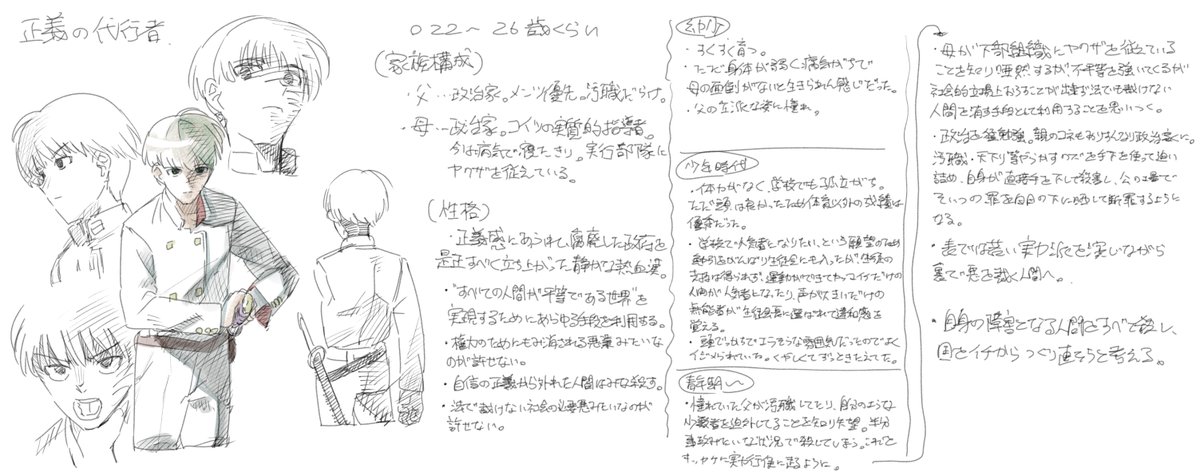 正義の代行者
○ 22～26歳くらい
(家族構成)
・父…政治家。メンツ優先。汚職だらけ。
・母…政治家。コイツの実質的指導者。
今は病気で寝たきり。実行部隊に
ヤクザを従えている。
(性格)
・正義感にあふれて、腐廃した政府を
是正すべく立ち上がった静かな熱血漢。
・"すべての人間が平等である世界"を
実現するためにあらゆる手段を利用する。
・権力のためにもみ消される悪事みたいな
のが許せない。
・自信の正義から外れた人間はみな殺す。
・法で裁けない社会の必要悪みたいなのが
許せない。
幼少
・すくすく育つ。
・ただ身体が弱く病気がちで
母の面倒がないと生きられん感じだった。
・父の立派な姿に憧れ。
少年時代
・体力がなく、学校でも孤立がち。
ただ頭は良かったため体育以外の成績は
優秀だった。
・学校で人気者になりたい、という願望のため
勉強をがんばり生徒会にも入ったが、生徒の
支持は得られず、運動ができてカッコイイだけの
人間が人気者となったり、声が大きいだけの
無能者が生徒会長に選ばれて違和感を
覚える。
・頭でっかちでエラそうな雰囲気だったのでよく
イジメられていた。くやしくてずっときたえてた。
青年期～
・憧れていた父が汚職してたり、自分のような
少数者を迫外してることを知り失望。半分
事故みたいな状況で殺してしまう。これで
すっかりヤケに実力行使に走るように。
・母が下部組織にヤクザを従えている
ことを知り唖然とするが不平等を強いてくるが
社会的立場上わることが出来ず法でも裁けない
人間を消す手段として利用することを思いつく。
・政治を猛勉強。親のコネもありすんなり政治家に。
汚職・天下り等やらかすのを手下を使って追い
詰め、自身が直接手を下して殺害し、公の場で
そいつの罪を白日の下に晒して断罪するように
なる。
・表では若い実力派を演じながら
裏で悪を裁く人間へ。
・自身の障害となる人間をすべて殺し、
国をイチからつくり直そうと考える。